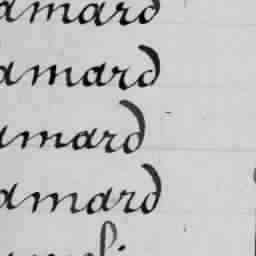 amard
amard
amard
amard